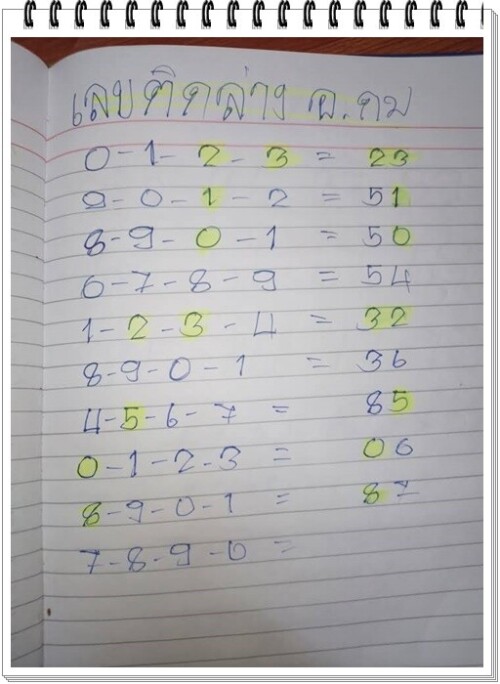 เลขติดล่าง อ.คม
0-1-2-3 = 23
9-0-1-2 = 51
8-9-0-1 = 50
6-7-8-9 = 54
1-2-3-4 = 32
8-9-0-1 = 36
4-5-6-7 = 85
0-1-2-3 = 06
8-9-0-1 = 87
7-8-9-0 =